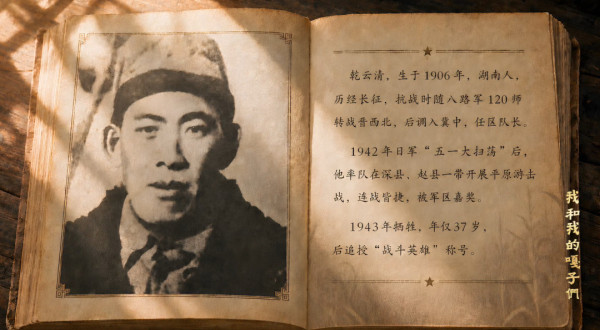 乾云清，生于1906年，湖南人，
历经长征，抗战时随八路军120师
转战晋西北，后调入冀中，任区队长。
1942年日军“五一大扫荡”后，
他率队在深县、赵县一带开展平原游击
战，连战皆捷，被军区嘉奖。
1943年牺牲，年仅37岁，
后追授“战斗英雄”称号。
我和我的嘎子们